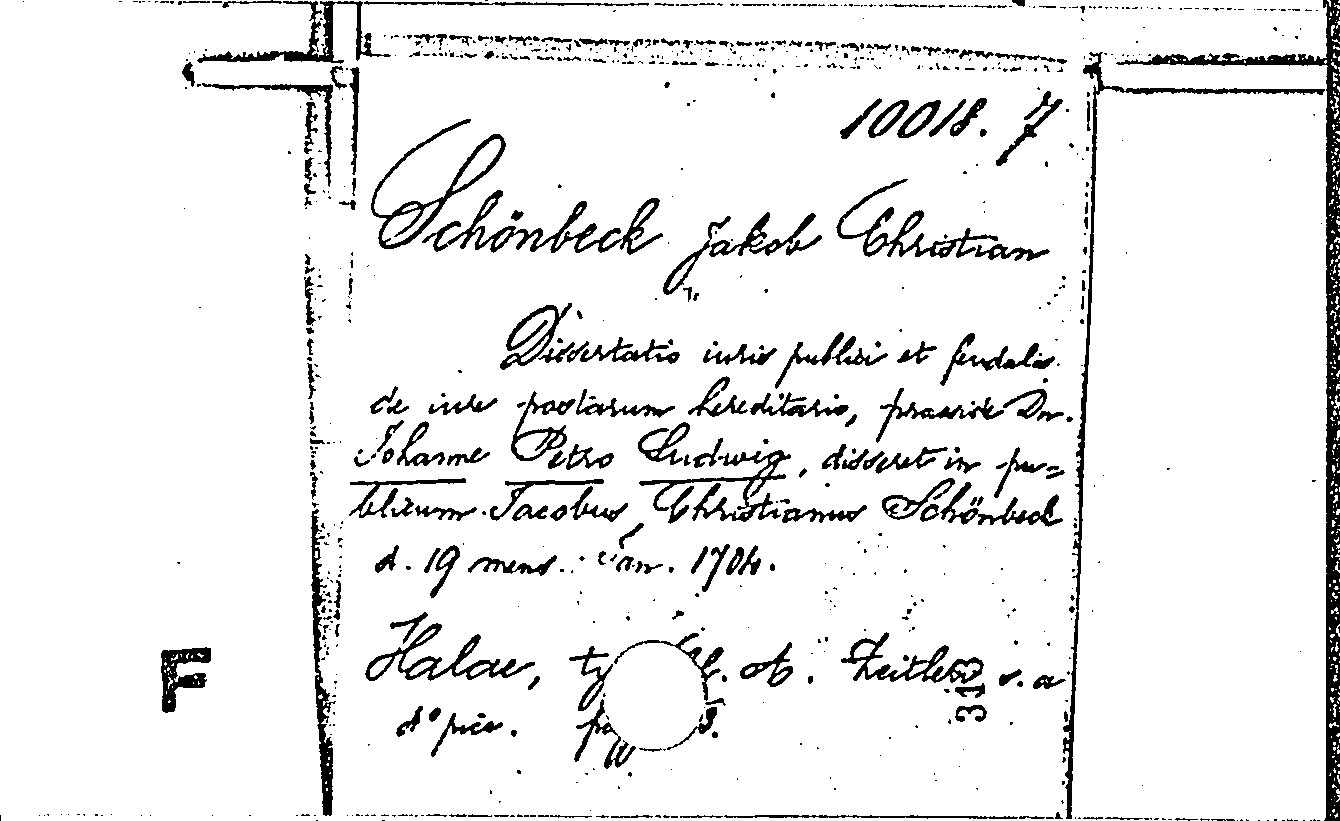 10018. 7
Schönbeck Jakob Christian
Dissertatio iuris publici et feudalis
de iure postarum hereditario, praeside Dn.
Johanne Petro Ludwig, disseret in pu=
blicum Jacobus Christianus Schönbeck
d. 19 mens. Jan. 1704.
Halae, A. Zeitleri s. a
4° pice.
313
F